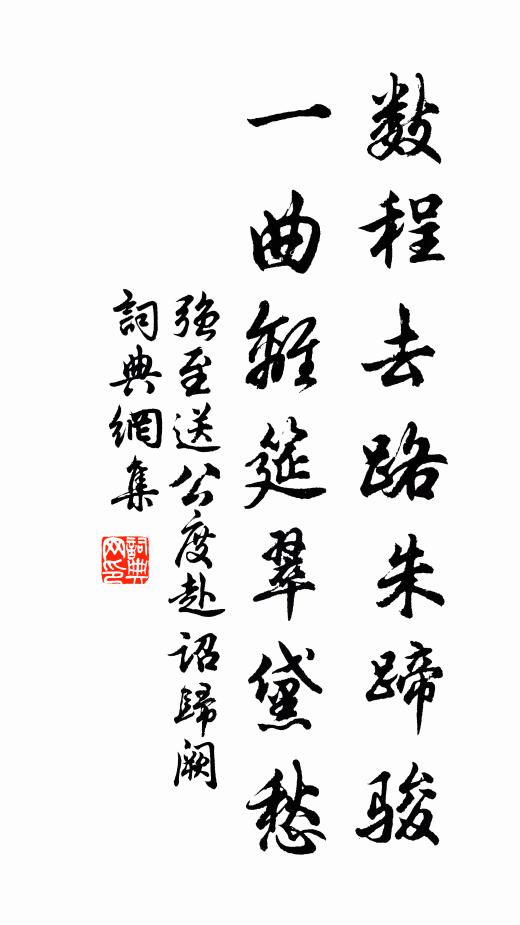 数程去路朱蹄骏
一曲離筵翠黛愁
強至送公度赴诏歸阙
詞典網集
詞典网印